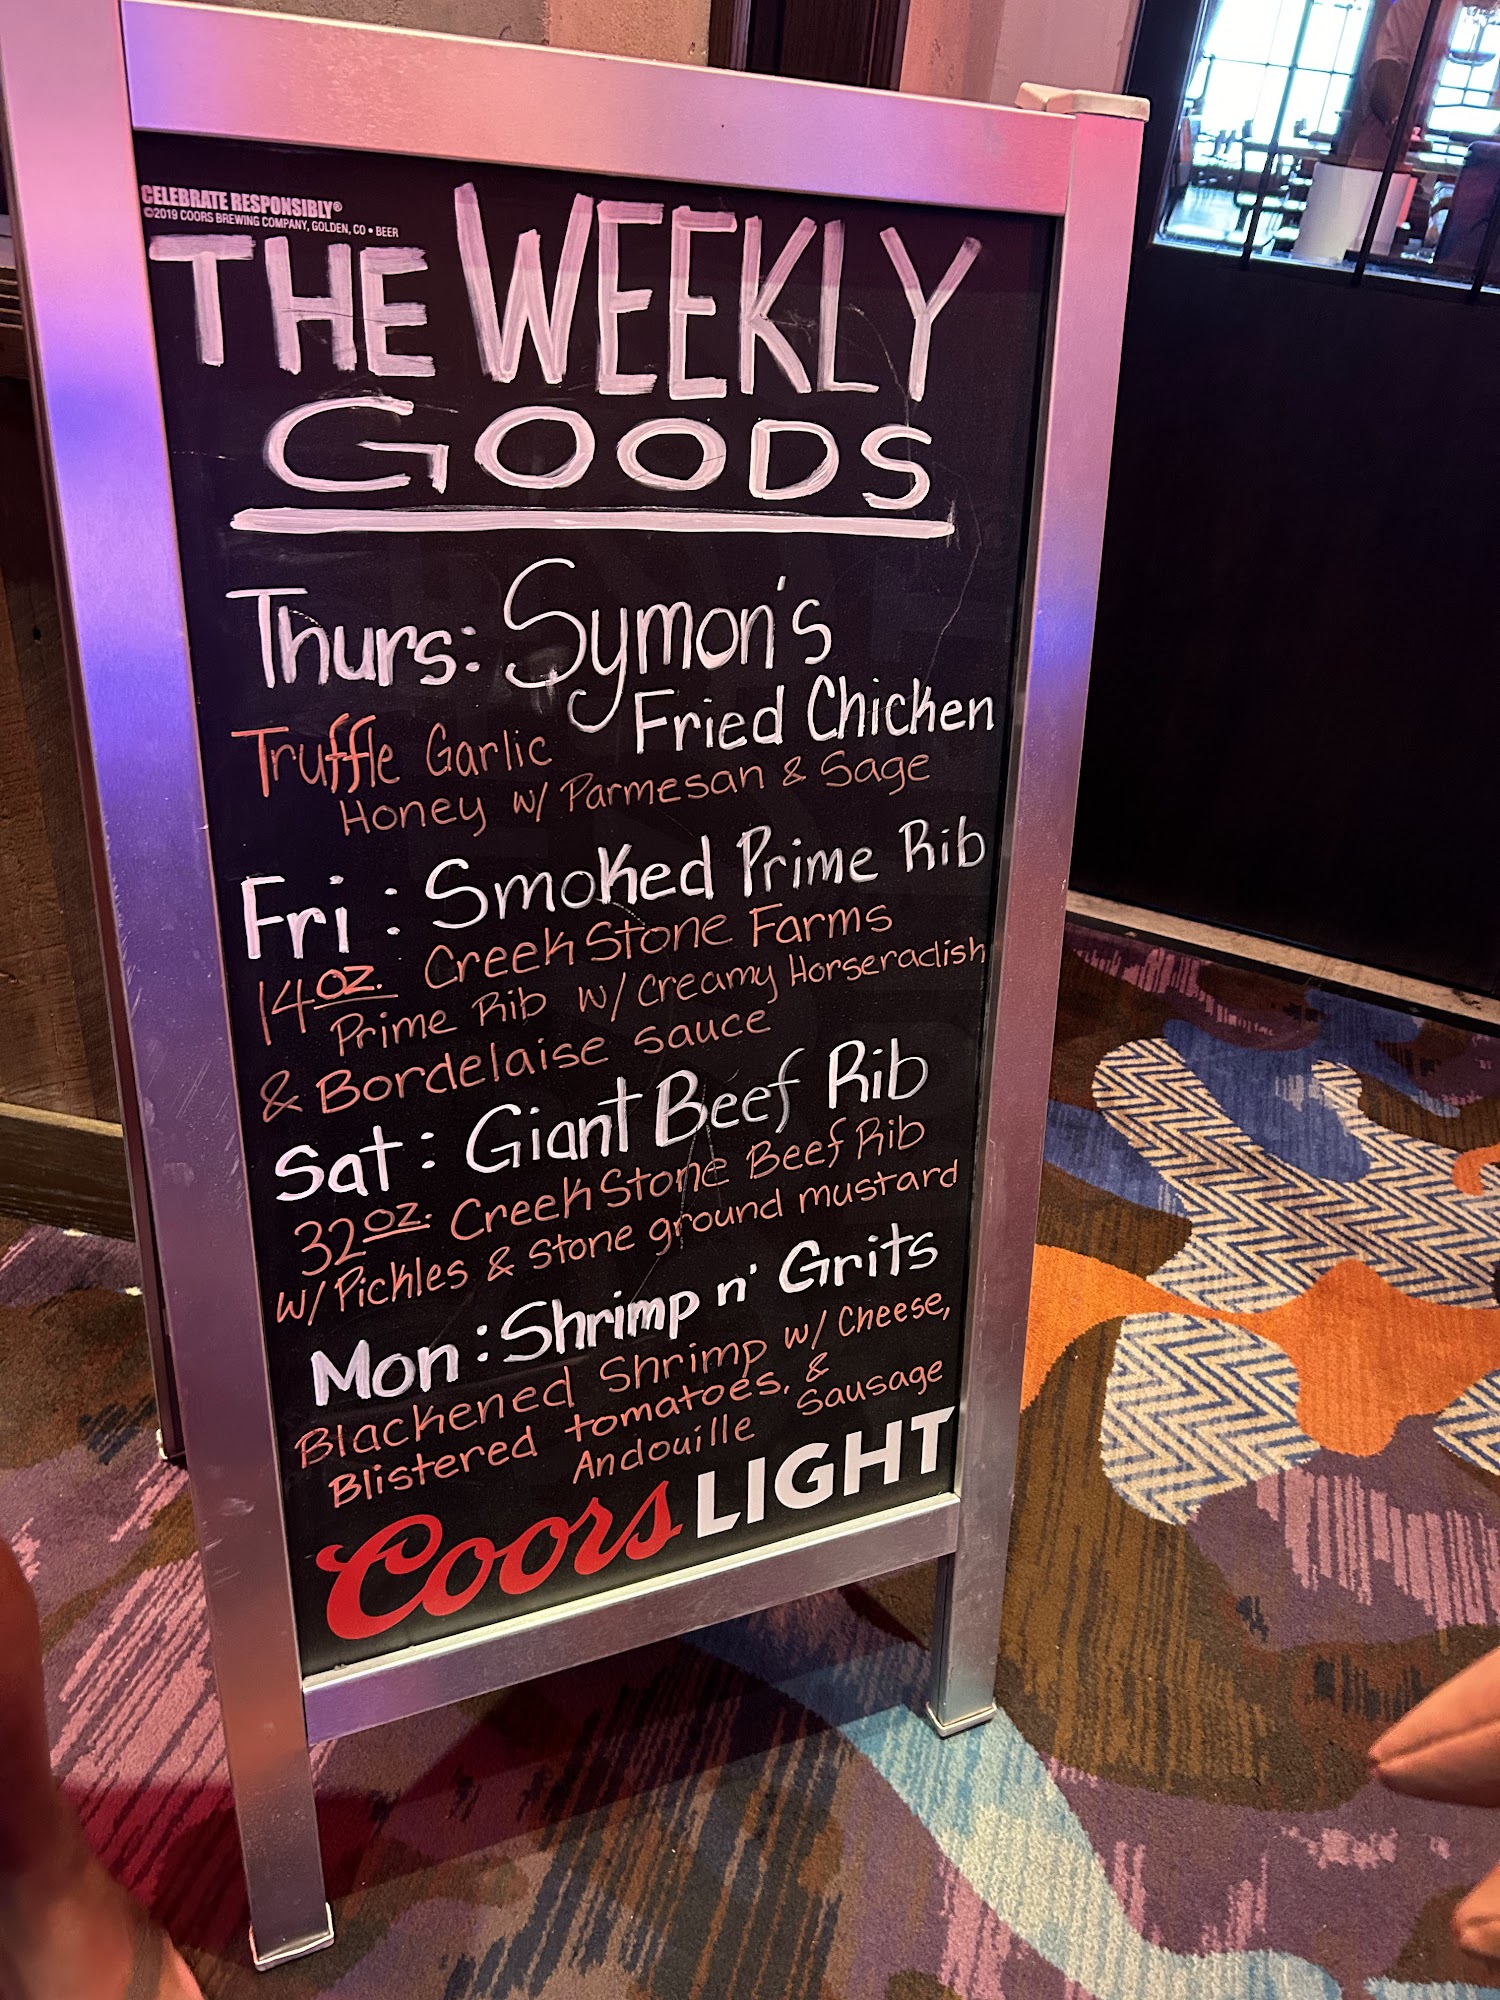 CELEBRATE RESPONSIBLY®
©2019 COORS BREWING COMPANY, GOLDEN, CO • BEER
THE WEEKLY
GOODS
Thurs: Symon's
Fried Chicken
Truffle Garlic
Honey w/ Parmesan & Sage
Fri: Smoked Prime Rib
14oz. CreekStone Farms
Prime Rib w/ Creamy Horseradish
& Bordelaise sauce
Sat: Giant Beef Rib
32oz. CreekStone Beef Rib
w/ Pickles & Stone ground mustard
Mon: Shrimp n' Grits
Blackened Shrimp w/ Cheese,
Blistered tomatoes, &
Andouille Sausage
Coors LIGHT